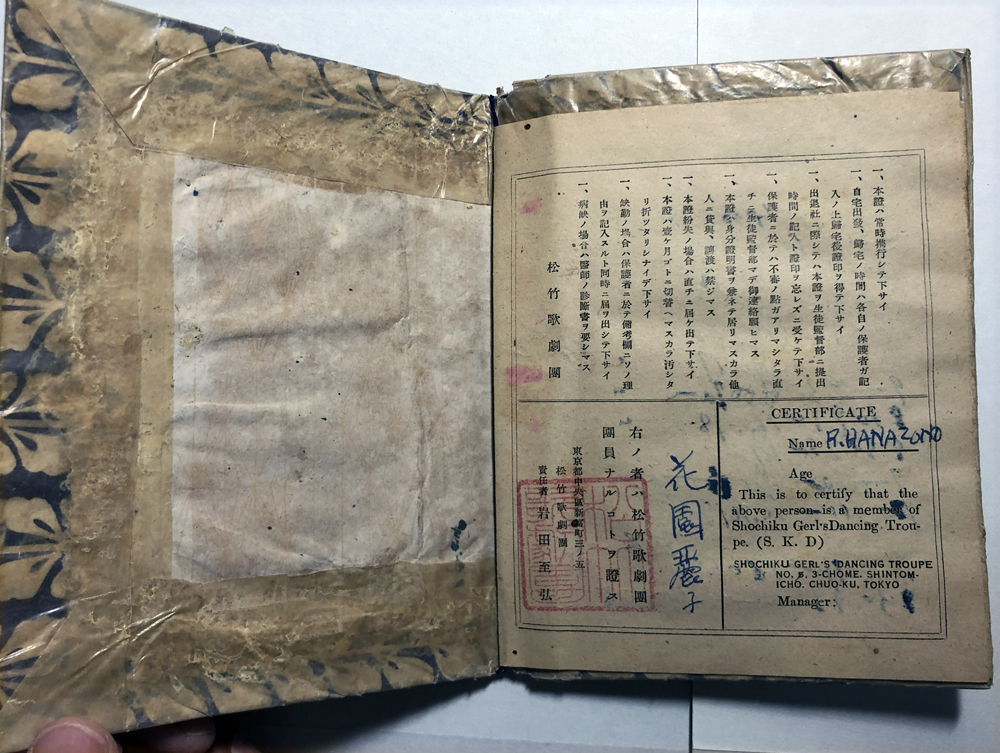 一、本證ハ常時携行シテ下サイ
一、自宅出發、歸宅ノ時間ハ各自ノ保護者ガ記
入ノ上歸宅後證印ヲ得テ下サイ
一、出退社ニ際シテハ本證ヲ生徒監督部ニ提出
時間ノ記入ト證印ヲ忘レズニ受ケテ下サイ
一、保護者ニ於テハ不審ノ點ガアリマシタラ直
チニ生徒監督部マデ御連絡願ヒマス
一、本證ハ身分證明書ヲ兼ネテ居リマスカラ他
人ニ貸與、讓渡ハ禁ジマス
一、本證紛失ノ場合ハ直チニ届ケ出テ下サイ
一、本證ハ壹ケ月ゴトニ切替ヘマスカラ汚シタ
リ折ツタリシナイデ下サイ
一、缺勤ノ場合ハ保護者ニ於テ備考欄ニソノ理
由ヲ記入スルト同時ニ届ヲ出シテ下サイ
一、病缺ノ場合ハ醫師ノ診斷書ヲ要シマス
松竹歌劇團
花園麗子
右ノ者ハ松竹歌劇團
團員ナルコトヲ證ス
東京都中央區新富町三ノ五
松竹歌劇團
責任者 岩田至弘
CERTIFICATE
Name R.HANAZONO
Age
This is to certify that the
above person is a member of
Shochiku Gerl'sDancing Trou-
pe. (S. K. D)
SHOCHIKU GERL'S DANCING TROUPE
NO. 5, 3-CHOME. SHINTOM-
ICHO. CHUO-KU, TOKYO
Manager: